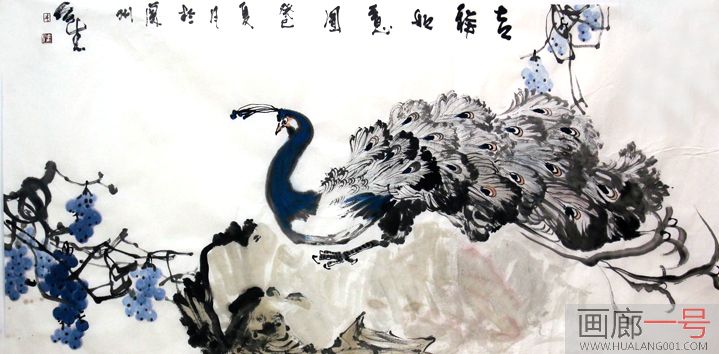 吉祥如意圖 癸巳夏月於蘭州
画廊一号
WWW.HUALANG001.COM